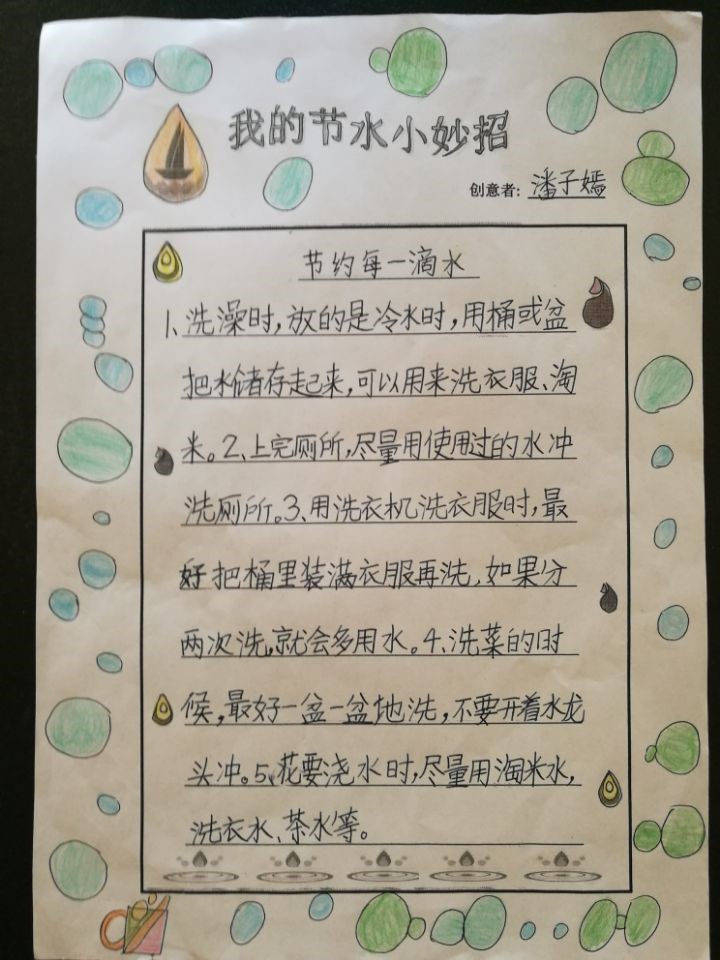 我的节水小妙招
创意者：潘子嫣
节约每一滴水
1、洗澡时，放的是冷水时，用桶或盆
把水储存起来，可以用来洗衣服、淘
米。2、上完厕所，尽量用使用过的水冲
洗厕所。3、用洗衣机洗衣服时，最
好把桶里装满衣服再洗，如果分
两次洗，就会多用水。4、洗菜的时
候，最好一盆一盆地洗，不要开着水龙
头冲。5、花要浇水时，尽量用淘米水，
洗衣水、茶水等。